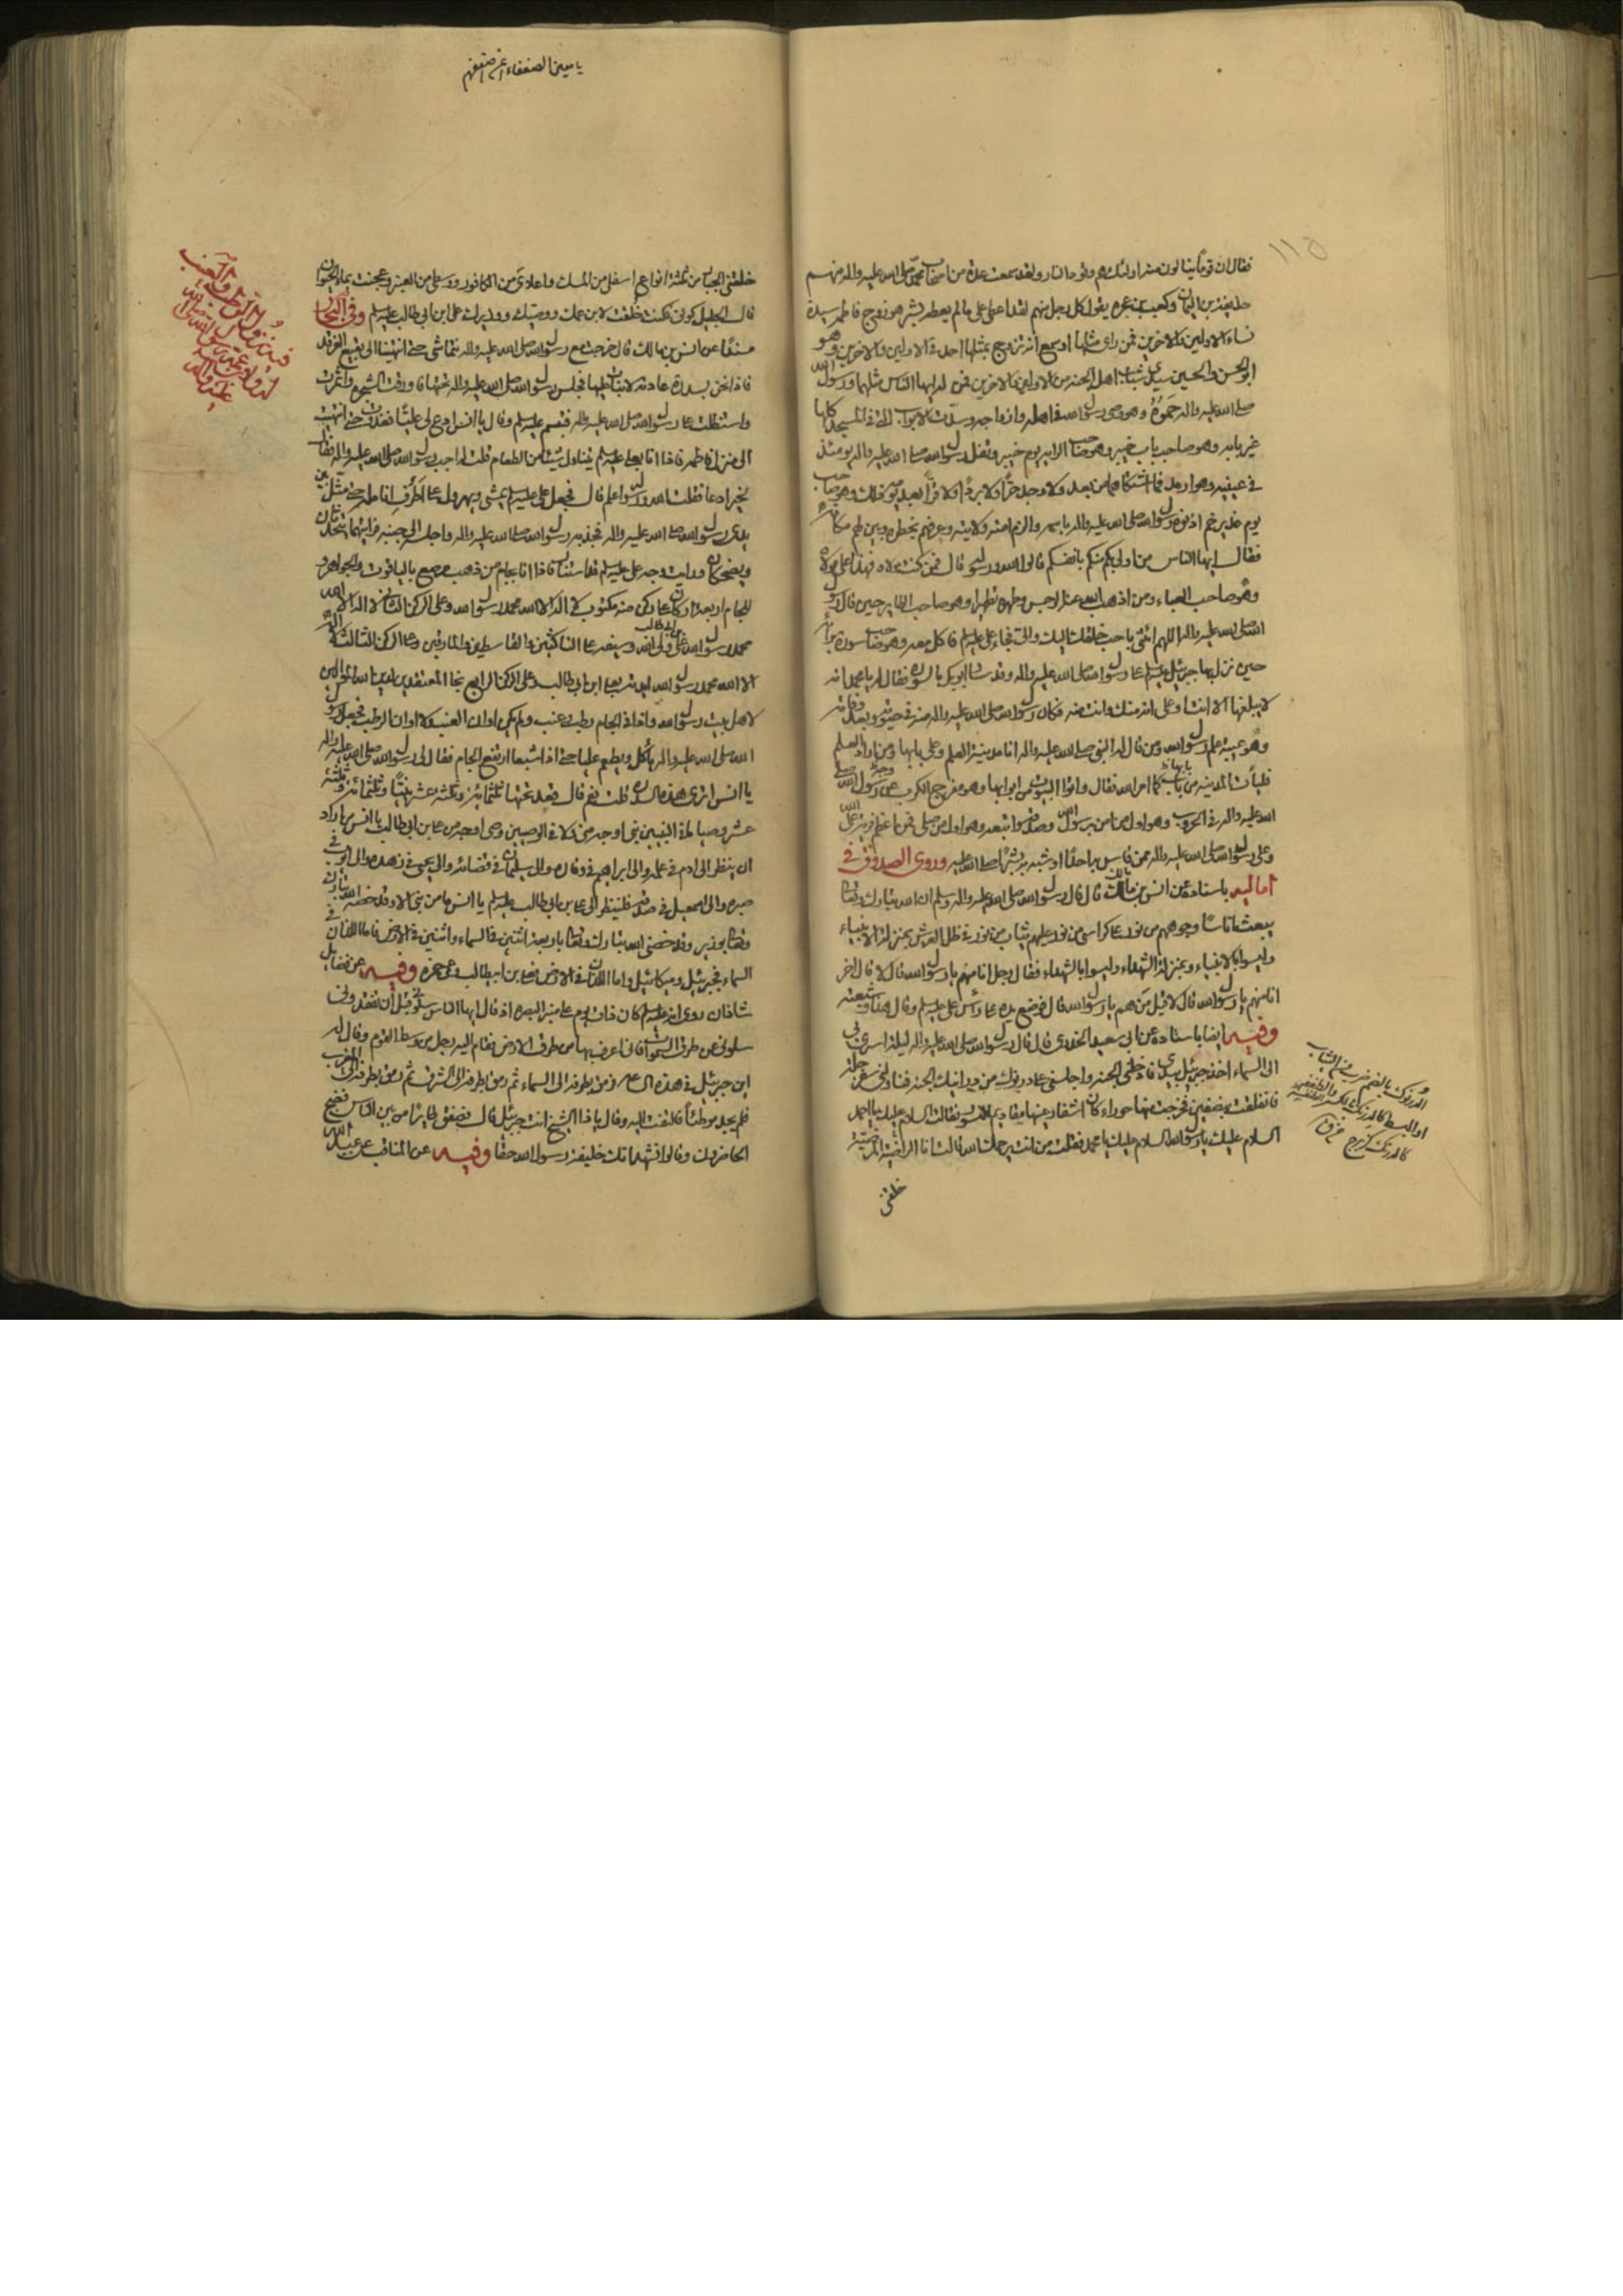 فقال ان قوما ينالون منه اولئك هم وقود النار ولقد سمعت عدة من اصحاب محمد صلى الله عليه واله منهم
حذيفة بن اليمان وكعب بن عجره يقول كل رجل منهم لقد اعطى على ما لم يعطه بشر هو زوج فاطمه سيدة
نساء الاولين والاخرين فمن راى مثلها او سمع انه تزوج بمثلها احد في الاولين والاخرين وهو
ابو الحسن والحسين سيدي شباب اهل الجنه من الاولين والاخرين فمن له ايها الناس مثلهما ورسول الله
صلى الله عليه واله حموه وهو وصي رسول الله في اهله وازواجه وسدت الابواب التي في المسجد كلها
غير بابه وهو صاحب باب خيبر وهو صاحب الرايه يوم خيبر وتفل رسول الله صلى الله عليه واله يومئذ
في عينيه وهو ارمد فما اشتكاهما من بعد ولا وجد حرا ولا بردا ولا قرا بعد يومه ذلك وهو صاحب
يوم غدير خم اذ نوه رسول الله صلى الله عليه واله باسمه والزم امته ولايته وعرفهم بخطره وبين لهم مكانه
فقال ايها الناس من اولى بكم منكم بانفسكم قالوا الله ورسوله قال فمن كنت مولاه فهذا على مولاه
وهو صاحب العباء ومن اذهب الله عنه الرجس وطهره تطهيرا وهو صاحب الطاير حين قال رسول
الله صلى الله عليه واله اللهم ائتني باحب خلقك اليك والى فجاء على عليه السلم فاكل معه وهو صاحب سورة براة
حين نزل بها جبرئيل عليه السلم على رسول الله صلى الله عليه واله وقد سار ابو بكر بالسوره فقال له يا محمد انه
لا يبلغها الا انت او على انه منك وانت منه فكان رسول الله صلى الله عليه واله منه في حيوته وبعد وفاته
وهو عيبة علم رسول الله ومن قال له النبي صلى الله عليه واله انا مدينة العلم وعلى بابها ومن اراد العلم
فليأت المدينه من بابها كما امر الله فقال واتوا البيوت من ابوابها وهو مفرج الكرب عن وجه رسول الله صلى
الله عليه واله في الحروب وهو اول من امن برسول الله وصدقه واتبعه وهو اول من صلى فمن اعظم فرية على الله
وعلى رسول الله صلى الله عليه واله ممن قاس به احدا او شبه به بشرا وروى الصدوق في
اماليه باسناده عن انس بن مالك قال قال رسول الله صلى الله عليه واله وسلم ان الله تبارك وتعالى
يبعث اناسا وجوههم من نور على كراسي من نور عليهم ثياب من نور في ظل العرش بمنزلة الانبياء
وليسوا بالانبياء وبمنزلة الشهداء وليسوا بالشهداء فقال رجل انا منهم يا رسول الله قال لا قال اخر
انا منهم يا رسول الله قال لا قيل من هم يا رسول الله قال فوضع يده على راس على عليه السلم وقال هذا وشيعته
وفيه ايضا باسناده عن ابي سعيد الخدري قال قال رسول الله صلى الله عليه واله ليلة اسري بي
الى السماء اخذ جبرئيل بيدي فادخلني الجنه واجلسني على درنوك من درانيك الجنه فناولني سفرجلة
فانفلقت بنصفين فخرجت منها حوراء كان اشفار عينها مقاديم النسور فقالت السلام عليك يا احمد
السلام عليك يا رسول الله السلام عليك يا محمد فقلت من انت يرحمك الله قالت انا الراضية المرضية
خلقني
الدرنوك بالضم ضرب من الثياب
او البسط
خلقني الجبار من ثلثة انواع اسفلى من المسك واعلاي من الكافور ووسطي من العنبر وعجنت بماء الحيوان
قال الجليل كوني فكنت خلقت لابن عمك ووصيك ووزيرك على ابن ابي طالب عليه السلم وفي البحار
مسندا عن انس بن مالك قال خرجت مع رسول الله صلى الله عليه واله نتماشى حتى انتهينا الى بقيع الغرقد
فاذا نحن بسدرة عادية لا نبات عليها فجلس رسول الله صلى الله عليه واله تحتها فاورقت الشجره واثمرت
واستظلت على رسول الله صلى الله عليه واله فتبسم وقال يا انس ادع لي عليا فعدوت حتى انتهيت
الى منزل فاطمه فاذا انا بعلي عليه السلم يتناول شيئا من الطعام قلت له اجب رسول الله صلى الله عليه واله فقال
لخير ادعا فقلت الله ورسوله اعلم قال فجعل على عليه السلم يمشي ويهرول على اطراف انامله حتى مثل بين
يدي رسول الله صلى الله عليه واله فجذبه رسول الله صلى الله عليه واله واجلسه الى جنبه فرايتهما يتحدثان
ويضحكان ورايت وجه على عليه السلم قد استنار فاذا انا بجام من ذهب مرصع بالياقوت والجواهر و
للجام اربعة اركان على ركن منه مكتوب لا اله الا الله محمد رسول الله وعلى الركن الثاني لا اله الا الله
محمد رسول الله على بن ابي طالب ولي الله وسيفه على الناكثين والقاسطين والمارقين وعلى الركن الثالث لا اله
الا الله محمد رسول الله ايدته بعلي ابن ابي طالب وعلى الركن الرابع نجا المعتقدون لدين الله الموالون
لاهل بيت رسول الله واذا في الجام رطب وعنب ولم يكن اوان العنب ولا اوان الرطب فجعل رسول
الله صلى الله عليه واله يأكل ويطعم عليا حتى اذا شبعا ارتفع الجام فقال لي رسول الله صلى الله عليه واله
يا انس اترى هذه السدره قلت نعم قال قعد تحتها ثلثمائة وثلثة عشر نبيا وثلثمائة وثلثة
عشر وصيا ما في النبيين نبي اوجه مني ولا في الوصيين وصي اوجه من على بن ابي طالب يا انس من اراد
ان ينظر الى ادم في علمه والى ابراهيم في وقاره والى سليمان في قضائه والى يحيى في زهده والى ايوب في
صبره والى اسمعيل في صدقه فلينظر الى على بن ابي طالب عليه السلم يا انس ما من نبي الا وقد خصه الله تبارك
وتعالى بوزير وقد خصني الله تبارك وتعالى باربعة اثنين في السماء واثنين في الارض فاما اللذان في
السماء فجبرئيل وميكائيل واما اللذان في الارض فعلي بن ابيطالب وعمي حمزه وفيه عن فضايل
شاذان روى انه عليه السلم كان ذات يوم على منبر البصره اذ قال ايها الناس سلوني قبل ان تفقدوني
سلوني عن طرق السموات فاني اعرف بها من طرق الارض فقام اليه رجل من وسط القوم وقال له
اين جبرئيل في هذه الساعه فرمق بطرفه الى السماء ثم رمق بطرفه الى المشرق ثم رمق بطرفه الى المغرب
فلم يجد موطئا فالتفت اليه وقال يا ذا الشيخ انت جبرئيل قال فصفق طايرا من بين الناس فضج
الحاضرون وقالوا نشهد انك خليفة رسول الله حقا وفيه عن المناقب عن عبد الله